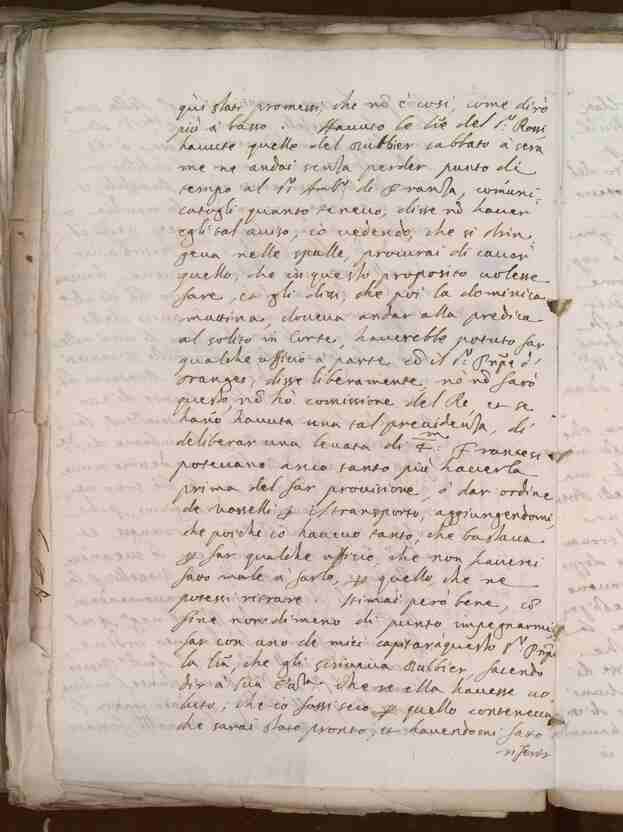 qui stati promessi, che nõ è così, come dirò
più à basso. Havuto le l̃re del S.r Rossi
havute quello del Rubbier sabbato à sera
me ne andai senza perder punto di
tempo al S.r Amb.r di Franza, comuni=
catogli quanto tenevo, disse nõ haver
egli tal aviso, io vedendo, che si strin=
geva nelle spalle, procurai di cavar
quello, che in questo proposito volesse
fare, et gli dissi, che poi la dominica
mattina doveva andar alla predica
al solito in Corte, haverebbe potuto far
qualche officio à parte cõ il S.r Prñpe d'
Oranges, disse liberamente, no nõ farò
questo, nõ hò comissione del Rè, et se
hanno havuta una tal precidenza, di
deliberar una levata di 4/m Francesi
potevano anco tanto più haverla
prima del far provisione, ò dar ordine
de Vasselli p il transporto, aggiungendomi,
che poiche io havevo tanto, che bastava
p far qualche officio, che non haverei
fatto male à farlo, p quello, che ne
potessi ritrare. Stimai però bene, cõ
fine nondimeno di punto impegnarmi,
far con uno de miei capitar à questo S.r Prñpe
la l̃ra, che gli scriveva Rubbier, facendo
dir à Sua Ecc.za che se ella havesse vo=
luto, che io fossi seco p quello conteneva
che sarei stato pronto, et havendomi fatto